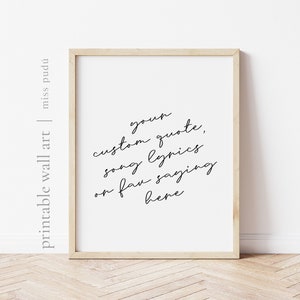 printable wall art | miss pudú
your
custom quote,
song lyrics
or fav saying
here